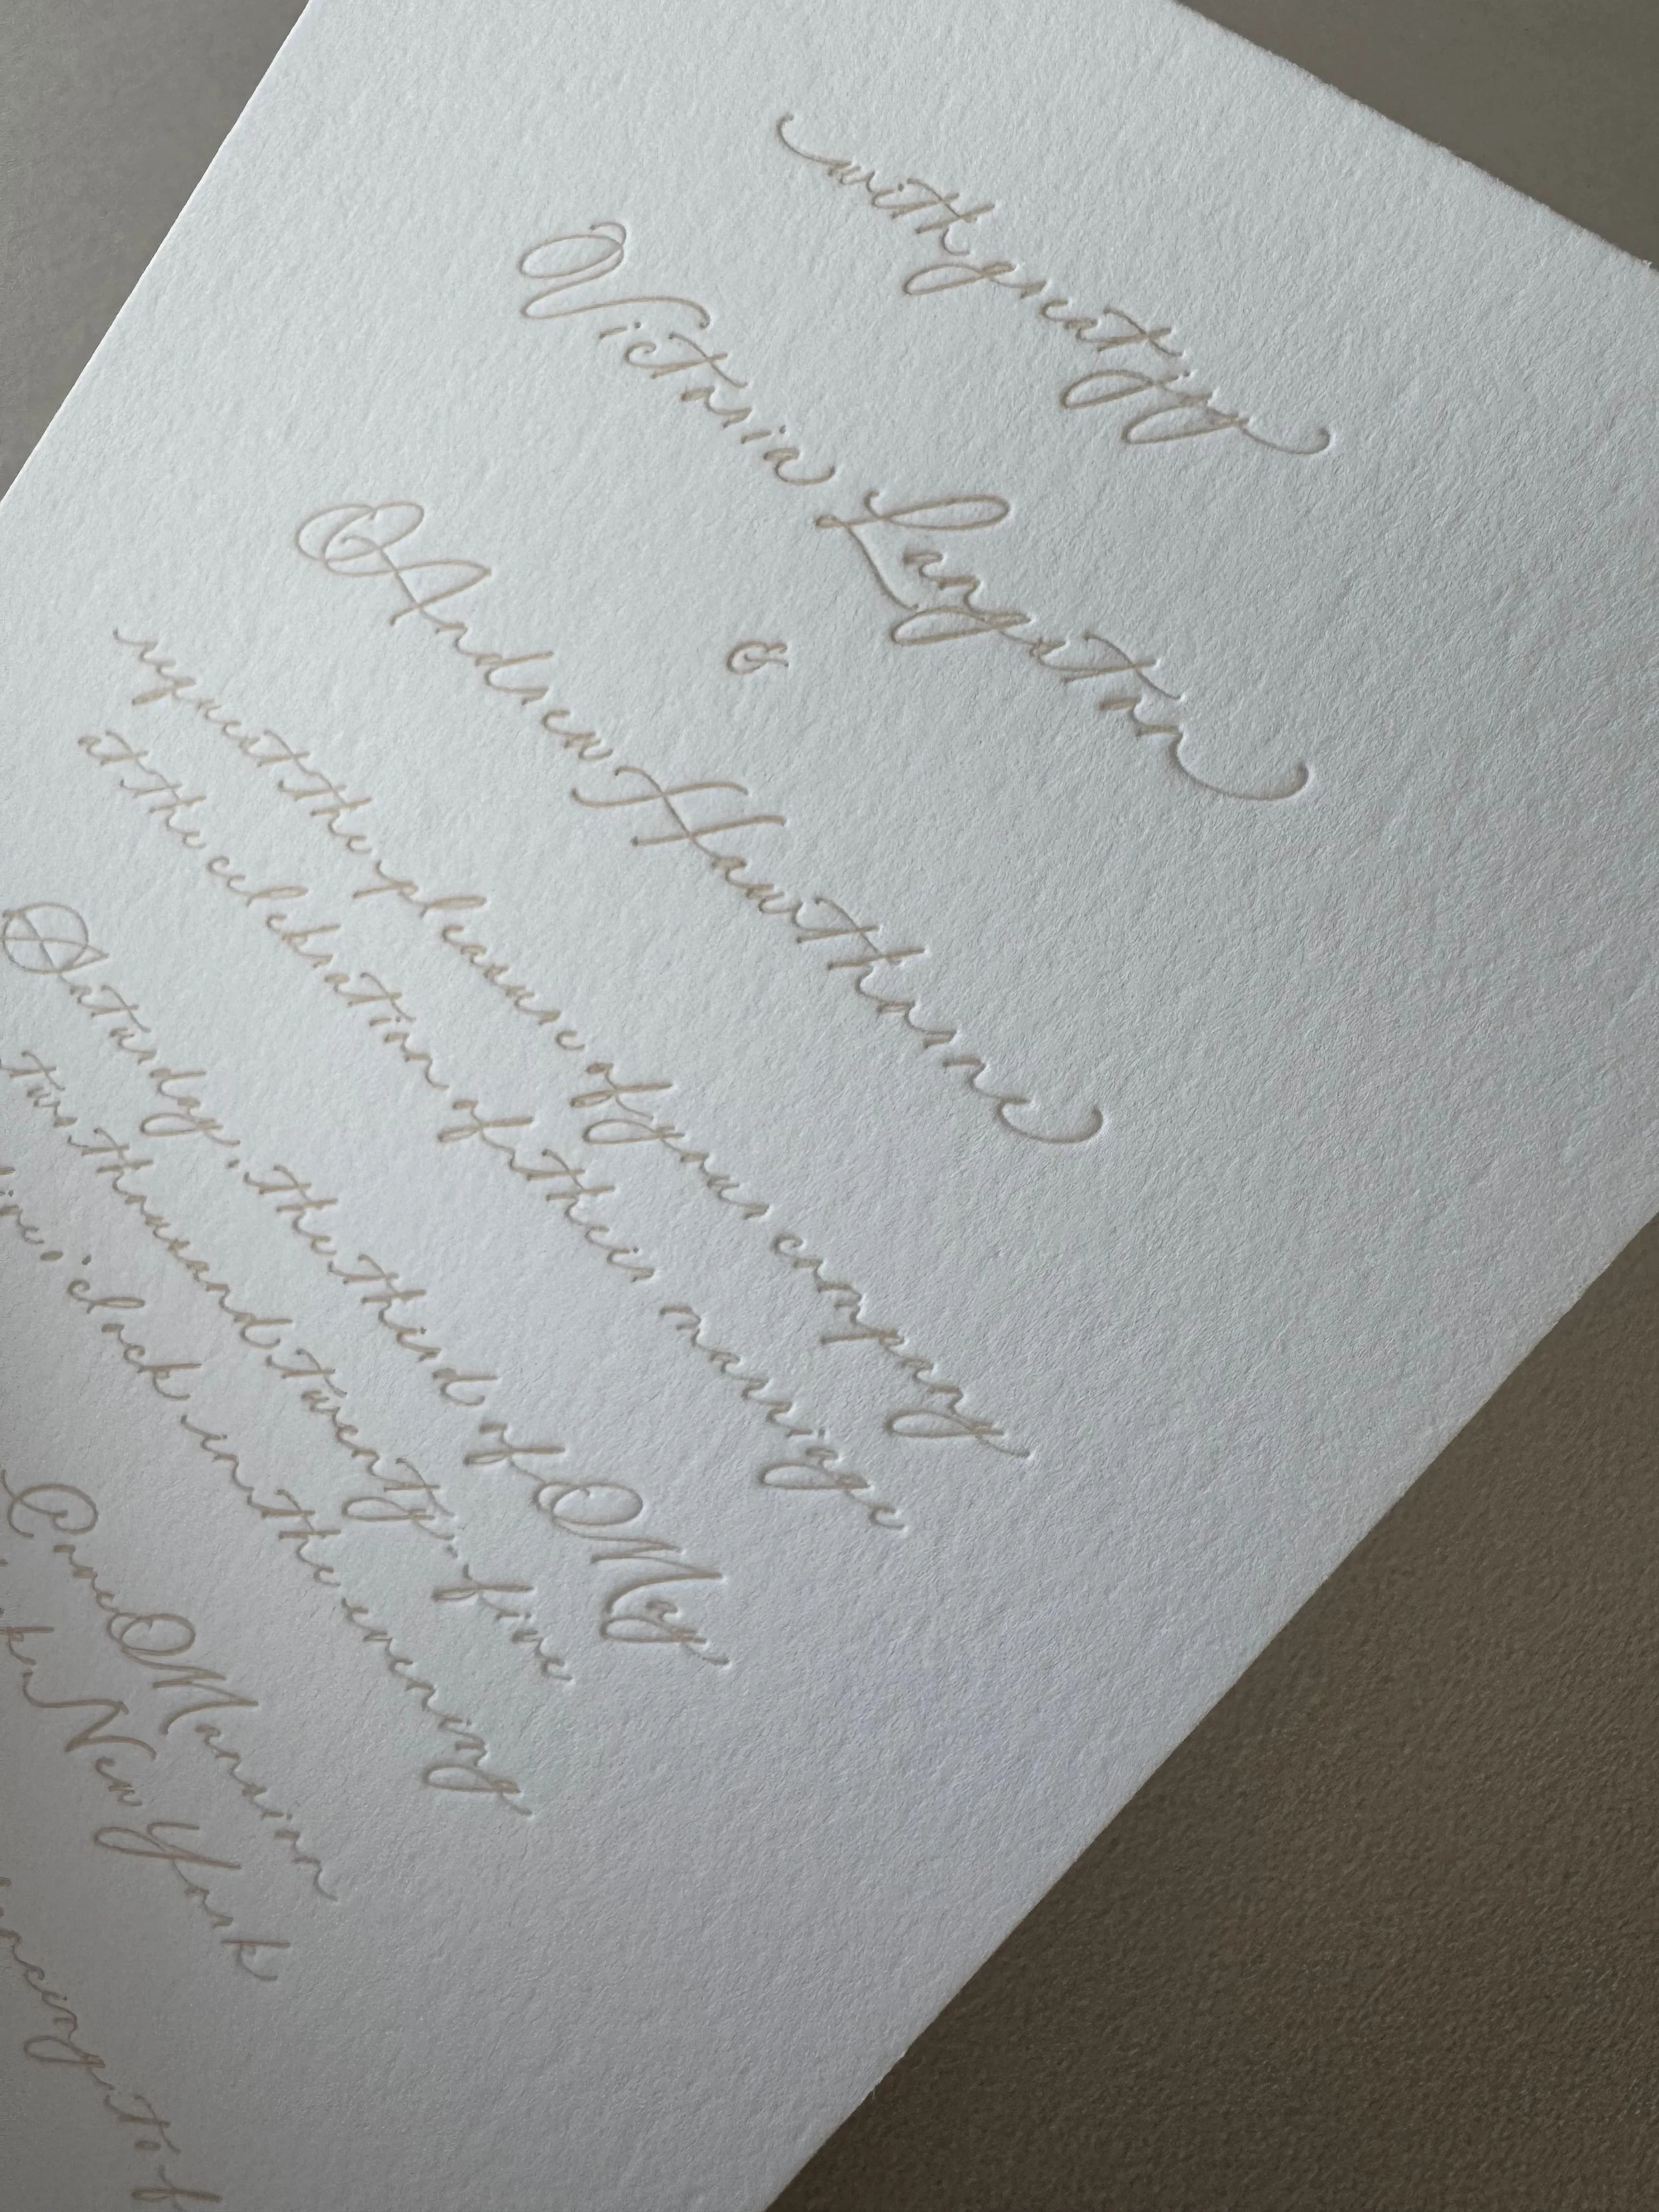 with great joy
Victoria Langston
&
Andrew Hawthorne
request the pleasure of your company
at the celebration of their marriage
Saturday, the third of May
two thousand twenty-five
o'clock in the evening
Mansion
New York